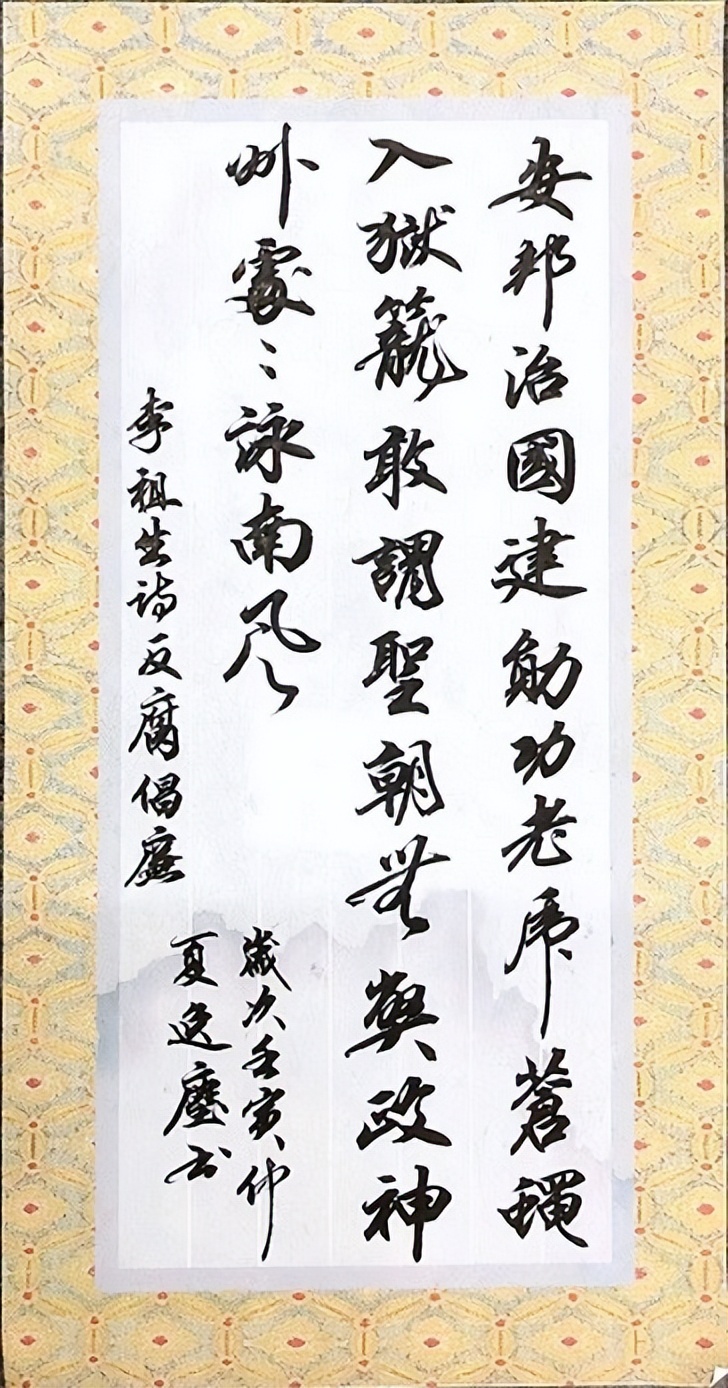 安邦治國建勛功老虎蒼蠅
入獄籠敢謂聖朝無弊政神
州處〻詠南風
李祖生詩反腐倡廉
歲次壬寅仲
夏逸塵書